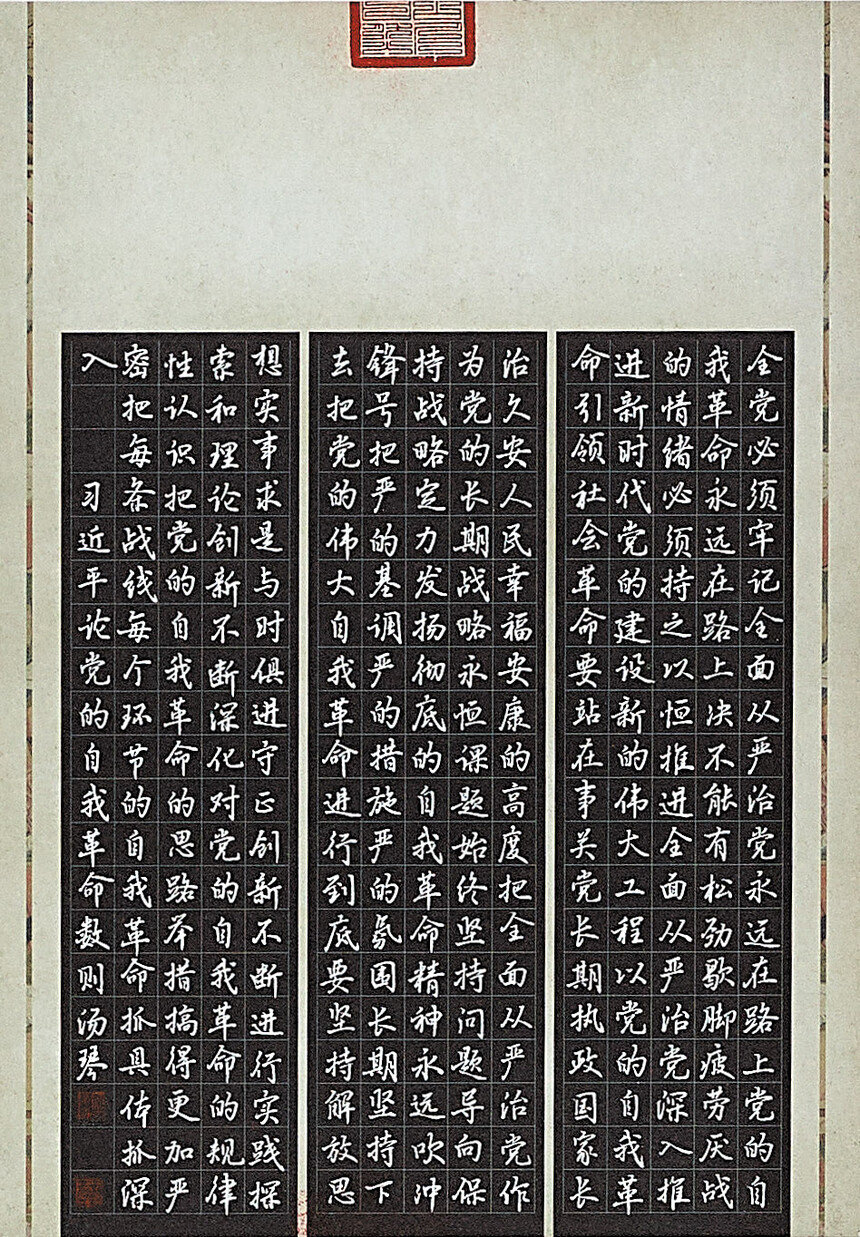 全党必须牢记全面从严治党永远在路上党的自
我革命永远在路上决不能有松劲歇脚疲劳厌战
的情绪必须持之以恒推进全面从严治党深入推
进新时代党的建设新的伟大工程以党的自我革
命引领社会革命要站在事关党长期执政国家长
治久安人民幸福安康的高度把全面从严治党作
为党的长期战略永恒课题始终坚持问题导向保
持战略定力发扬彻底的自我革命精神永远吹冲
锋号把严的基调严的措施严的氛围长期坚持下
去把党的伟大自我革命进行到底要坚持解放思
想实事求是与时俱进守正创新不断进行实践探
索和理论创新不断深化对党的自我革命的规律
性认识把党的自我革命的思路举措搞得更加严
密把每条战线每个环节的自我革命抓具体抓深
入
习近平论党的自我革命数则汤琴